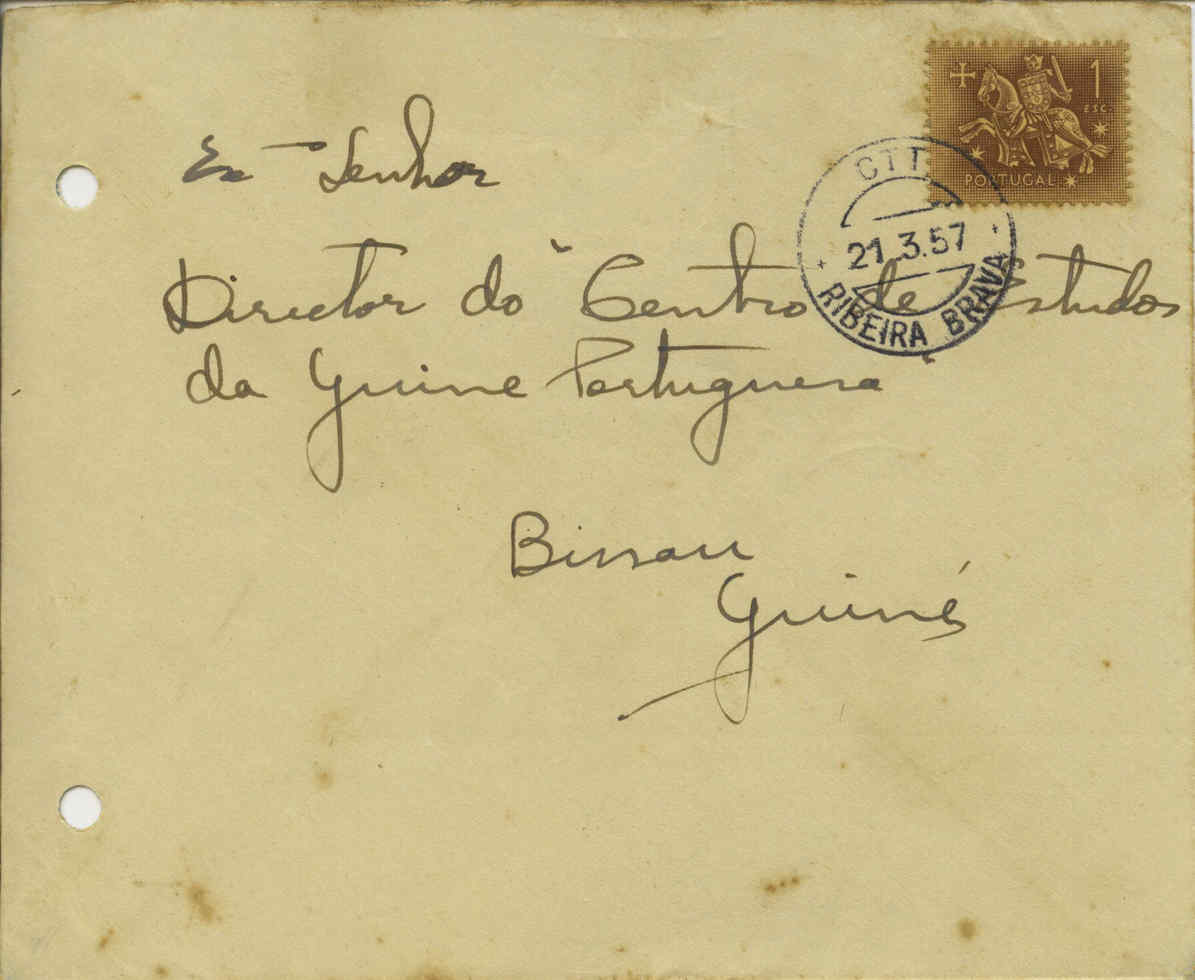 1
ESC.
PORTUGAL
CTT
21.3.57
RIBEIRA BRAVA
Exmo Senhor
Director do "Centro de Estudos
da Guine Portuguesa"
Bissau
Guiné